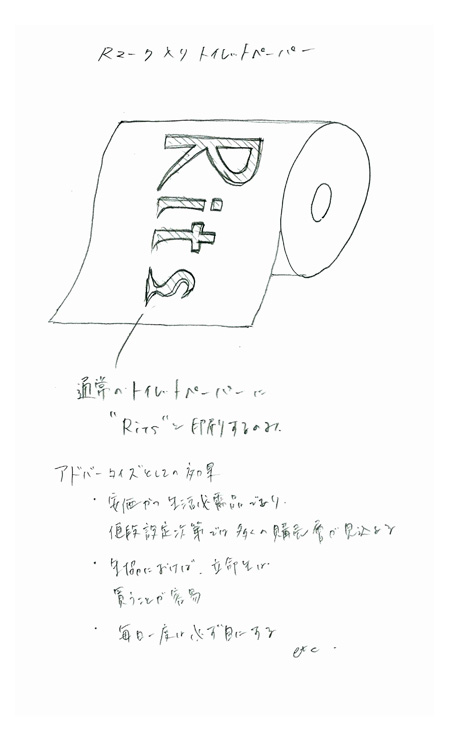 Rマーク入り トイレットペーパー
Rits
通常のトイレットペーパーに
"Rits"と印刷するのみ。
アドバータイズとしての効果
・安価かつ生活必需品であり、
値段設定次第では多くの購買層が見込める
・生協におけば、立命生は
買うことが容易
・毎日一度は必ず目にする
etc.